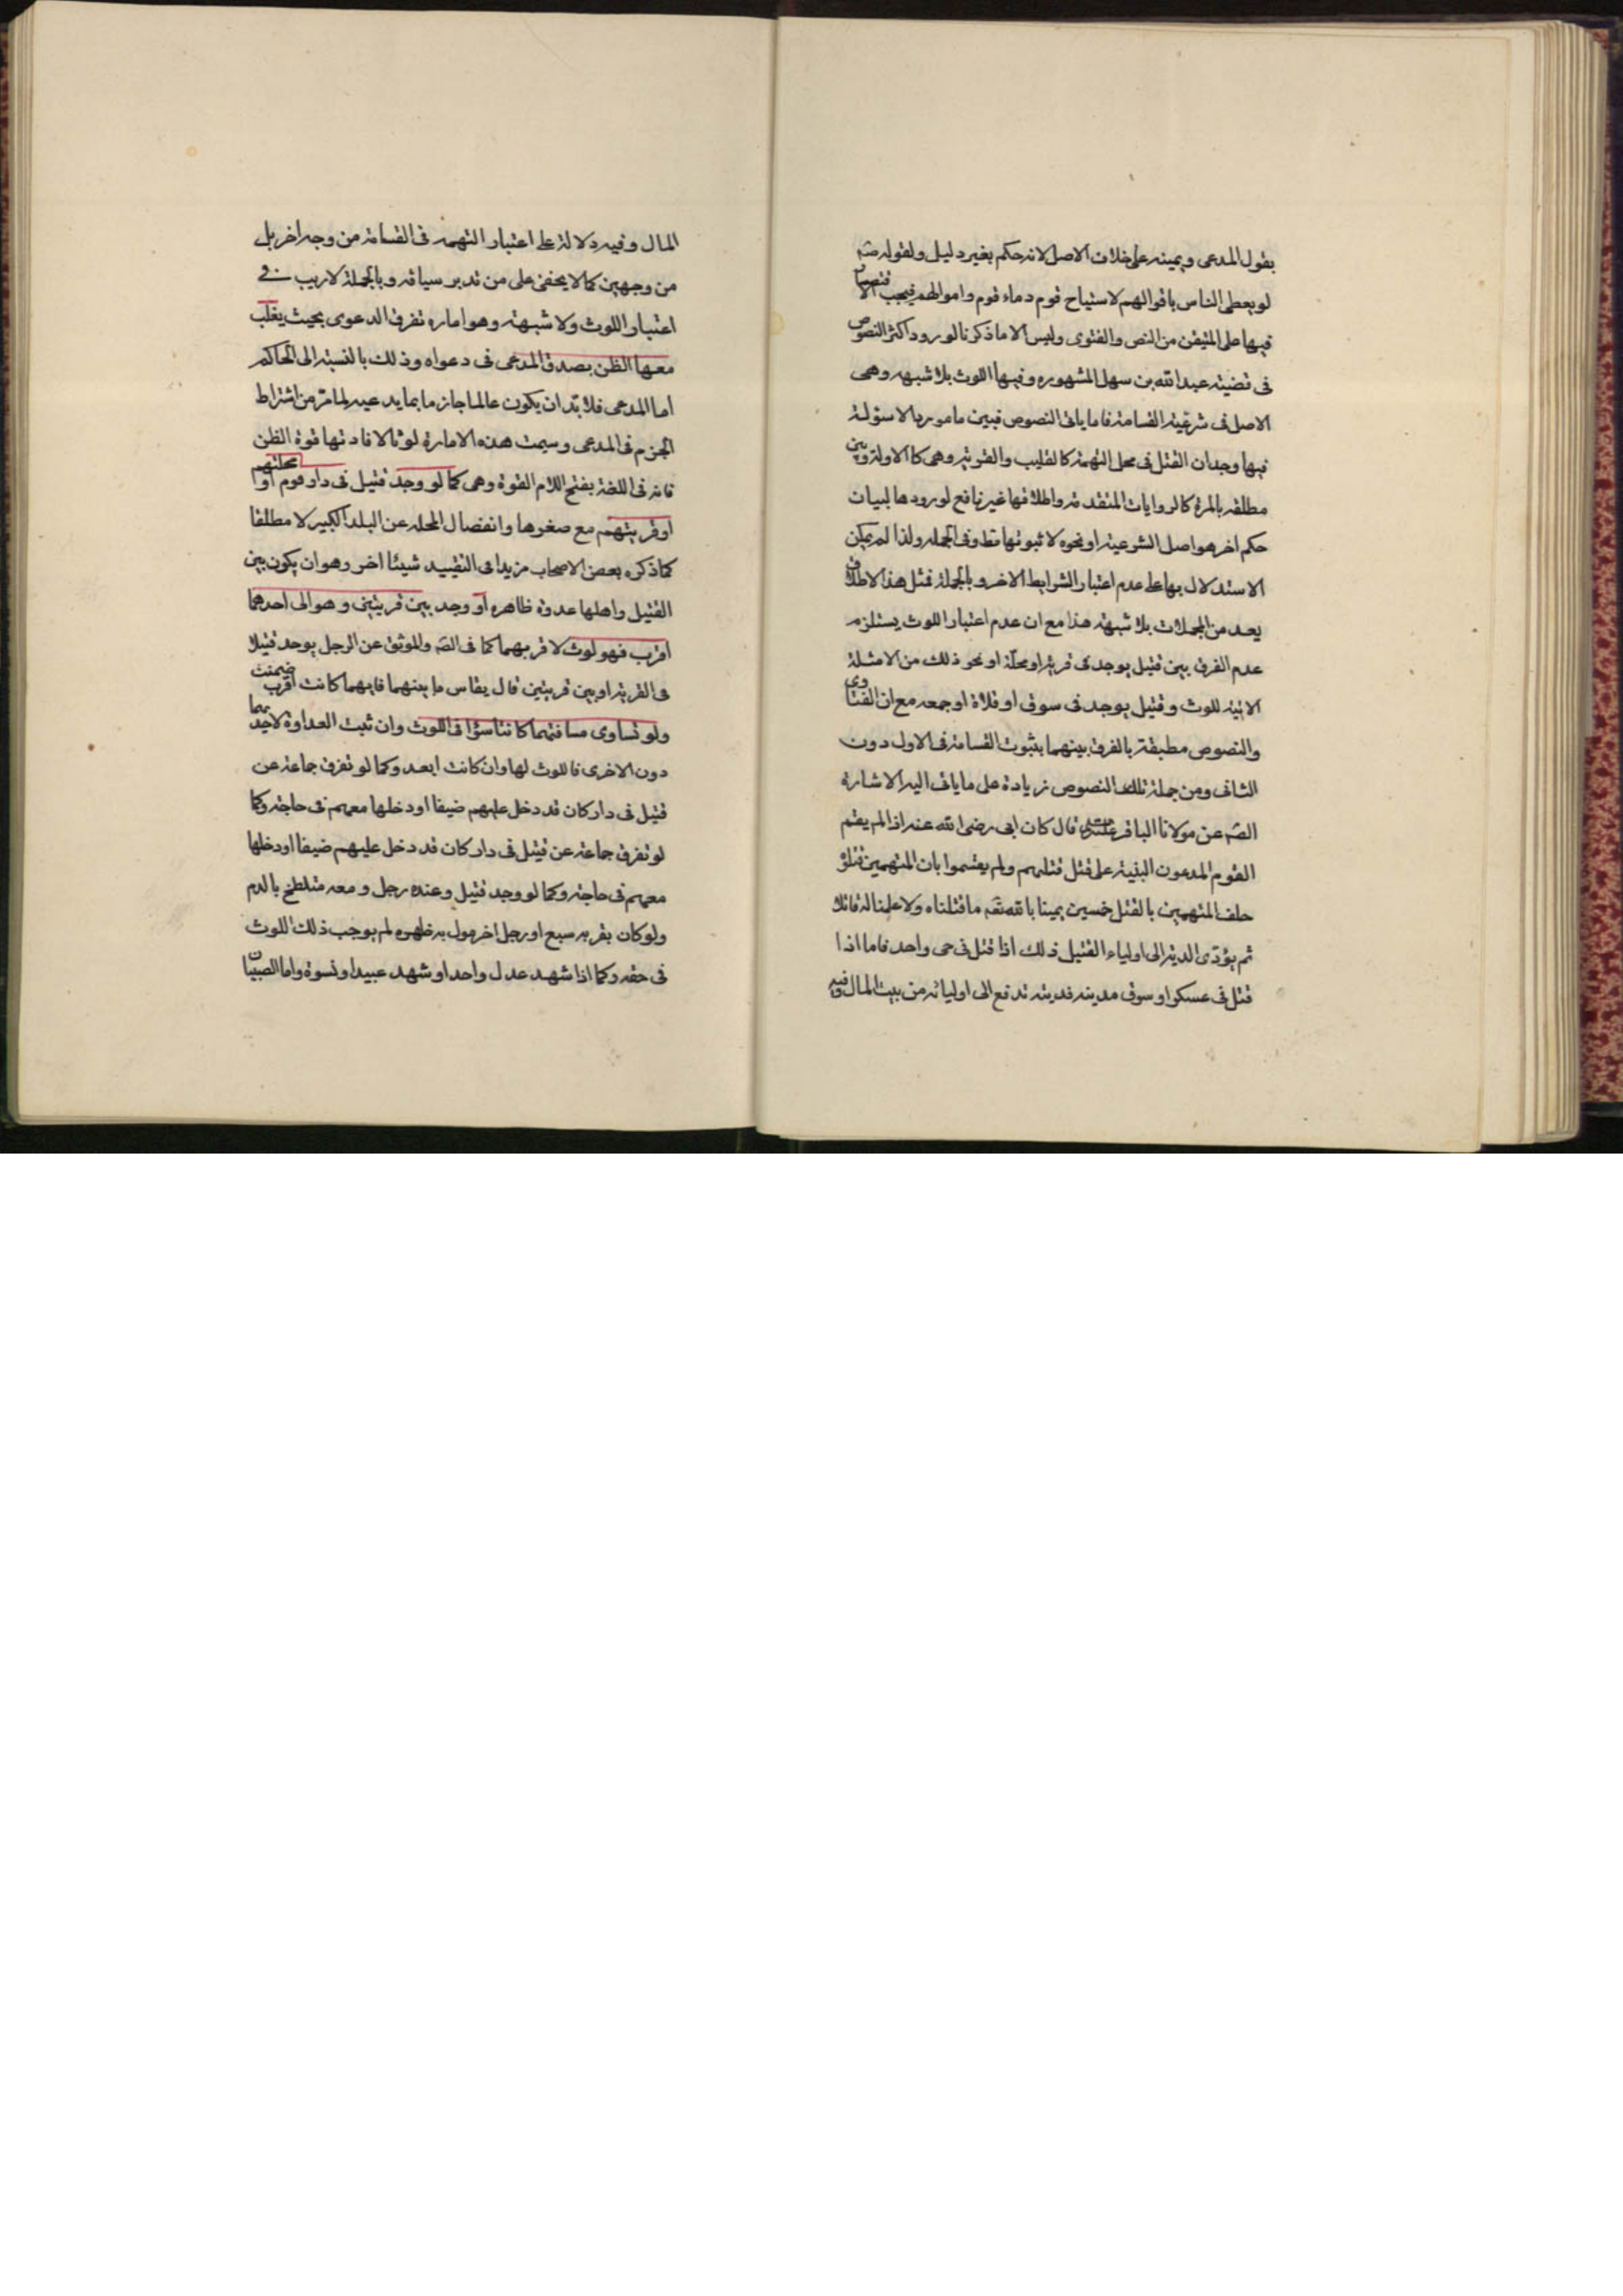 بقول المدعى ويمينه على خلاف الاصل لانه حكم بغير دليل ولقوله صم
لو يعطى الناس باقوالهم لاستباح قوم دماء قوم واموالهم فيجب الاقتصار
فيها على المتيقن من النص والفتوى وليس الا ما ذكرنا لورود اكثر النصوص
فى قضية عبد الله بن سهل المشهوره وفيها اللوث بلا شبهه وهى
الاصل فى شرعية القسامة فاما باقى النصوص فبين ما مورد الاسولة
فيها وجدان القتل فى محل التهمة كالقليب والقرية وهى كالاولة وبين
مطلقه بالمرة كالروايات المتقدمة واطلاقها غير نافع لورودها لبيان
حكم اخر هو اصل الشرعية او نحوه لا ثبوتها مط وفى الجمله ولذا لم يمكن
الاستدلال بها على عدم اعتبار الشرايط الاخر وبالجملة فمثل هذا الاطلاق
يعد من المجملات بلا شبهة هذا مع ان عدم اعتبار اللوث يستلزم
عدم الفرق بين قتيل يوجد فى قرية او محلة او نحو ذلك من الامثلة
الاتية للوث وقتيل يوجد فى سوق او فلاة او جمعه مع ان الفتاوى
والنصوص مطبقة بالفرق بينهما بثبوت القسامة فى الاول دون
الثانى ومن جملة تلك النصوص زيادة على ما ياتى اليه الاشاره
الصم عن مولانا الباقر قال كان ابى رضى الله عنه اذا لم يقم
القوم المدعون البنية على قتل قتيلهم ولم يقسموا بان المتهمين قتلو
حلف المتهمين بالقتل خمسين يمينا بالله تعم ما قتلناه ولا علمنا له قاتلا
ثم يؤدى الدية الى اولياء القتيل ذلك اذا قتل فى حى واحد فاما اذا
قتل فى عسكر او سوق مدينه فديته تدفع الى اوليائه من بيت المال وفيه
المال وفيه دلالة على اعتبار التهمه فى القسامة من وجه اخر بل
من وجهين كما لا يخفى على من تدبر سياقه وبالجملة لا ريب فى
اعتبار اللوث ولا شبهة وهو اماره تفرق الدعوى بحيث يغلب
معها الظن بصدق المدعى فى دعواه وذلك بالنسبة الى الحاكم
اما المدعى فلا بد ان يكون عالما جازما بما يدعيه لما مر من اشتراط
الجزم فى المدعى وسيمت هذه الامارة لوثا لافادتها قوة الظن
فانه فى اللغة بفتح اللام القوة وهى كما لو وجد قتيل فى دار قوم او محلتهم
او قريتهم مع صغرها وانفصال المحله عن البلد الكبير لا مطلقا
كما ذكره بعض الاصحاب مزيدا فى التقييد شيئا اخر وهو ان يكون بين
القتيل واهلها عدوة ظاهره او وجد بين قريتين وهو الى احدهما
اقرب فهو لوث لاقربهما كما فى الصم والموثق عن الرجل يوجد قتيلا
فى القرية او بين قريتين قال يقاس ما بينهما فايهما كانت اقرب ضمنت
ولو تساوى مسافتهما كانتا سؤا فى اللوث وان ثبت العداوة لاحديهما
دون الاخرى فاللوث لها وان كانت ابعد وكما لو تفرق جماعة عن
قتيل فى دار كان قد دخل عليهم ضيفا او دخلها معهم فى حاجة وكما
لو تفرق جماعة عن قتيل فى دار كان قد دخل عليهم ضيفا او دخلها
معهم فى حاجة وكما لو وجد قتيل وعنده رجل ومعه متلطخ بالدم
ولو كان بقربه سبع او رجل اخر مول به ظهره لم يوجب ذلك اللوث
فى حقه وكما اذا شهد عدل واحد او شهد عبيدا ونسوة واما الصبيان